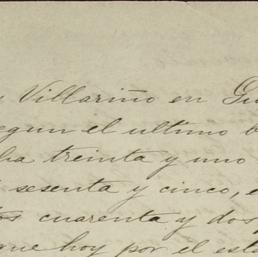 Villariño en
segun el ultimo
treinta y uno
sesenta y cinco,
cuarenta y dos
que hoy por el